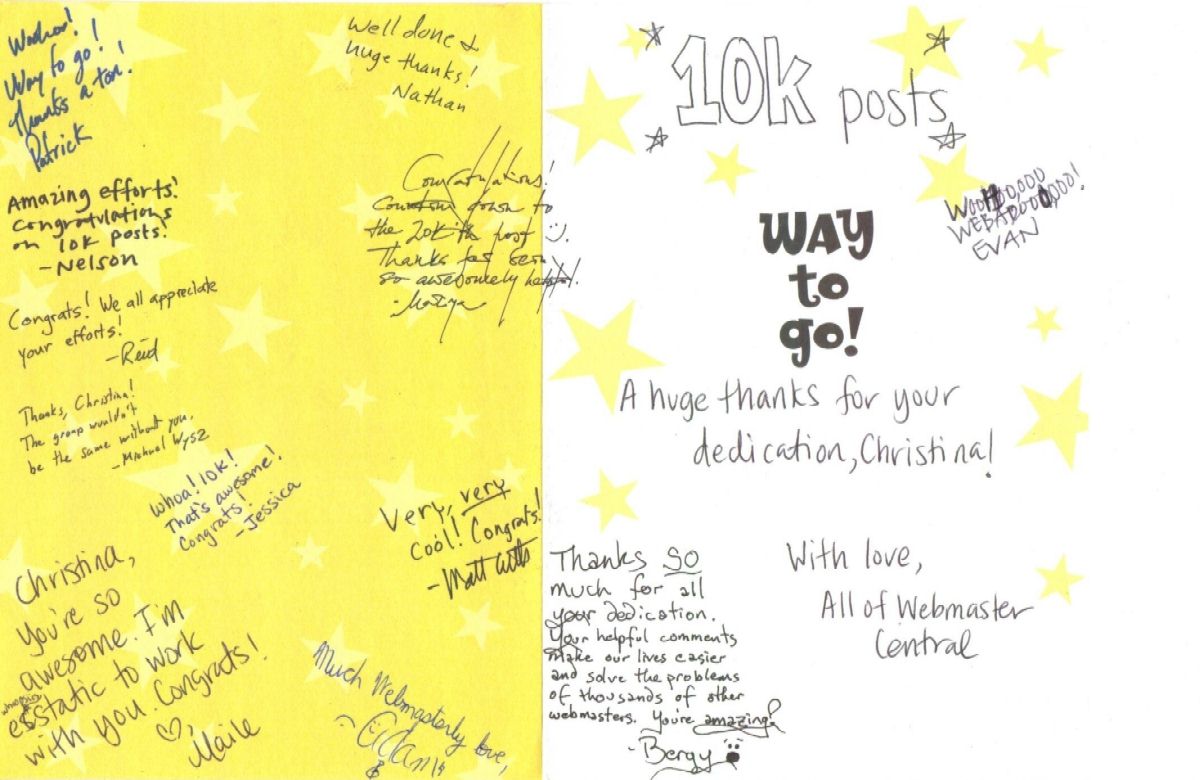 Woohoo!
Way to go!
Thanks a ton!
Patrick
Well done &
huge thanks!
Nathan
Amazing efforts!
Congratulations
on 10k posts!
-Nelson
Congratulations!
down to
the 20K'th post :).
Thanks for being
so awesomely helpful!
Congrats! We all appreciate
your efforts!
-Reid
Thanks, Christina!
The group wouldn't
be the same without you.
-Michael Wysz
Whoa! 10k!
That's awesome!
Congrats!
-Jessica
Very, very
cool! Congrats!
-Matt Cutts
Christina,
You're so
awesome. I'm
ecstatic to work
with you. Congrats!
♡, Maile
Much Webmasterly love,
10k posts
WOOH00,000
EVAN
WAY
to
go!
A huge thanks for your
dedication, Christina!
Thanks SO
much for all
your dedication.
Your helpful comments
make our lives easier
and solve the problems
of thousands of other
webmasters. You're amazing!
-Bergy
With love,
All of Webmaster
Central